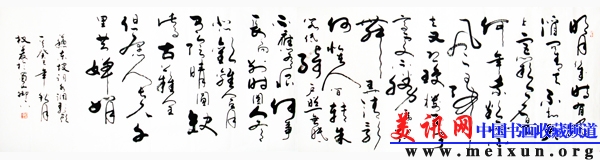 明月几时有把
酒问青天不知天
上宫阙今夕是
何年我欲乘
风归
去又恐琼楼玉
宇高处不胜寒起
舞弄清影
何似在人间转朱
阁低绮户照无眠
不应有恨何事
长向别时圆人有
悲欢离合月
有阴晴圆缺
此事古难全
但愿人长久千
里共婵娟
苏东坡词水调歌头
美讯网 中国书画收藏频道
www.meixun.org